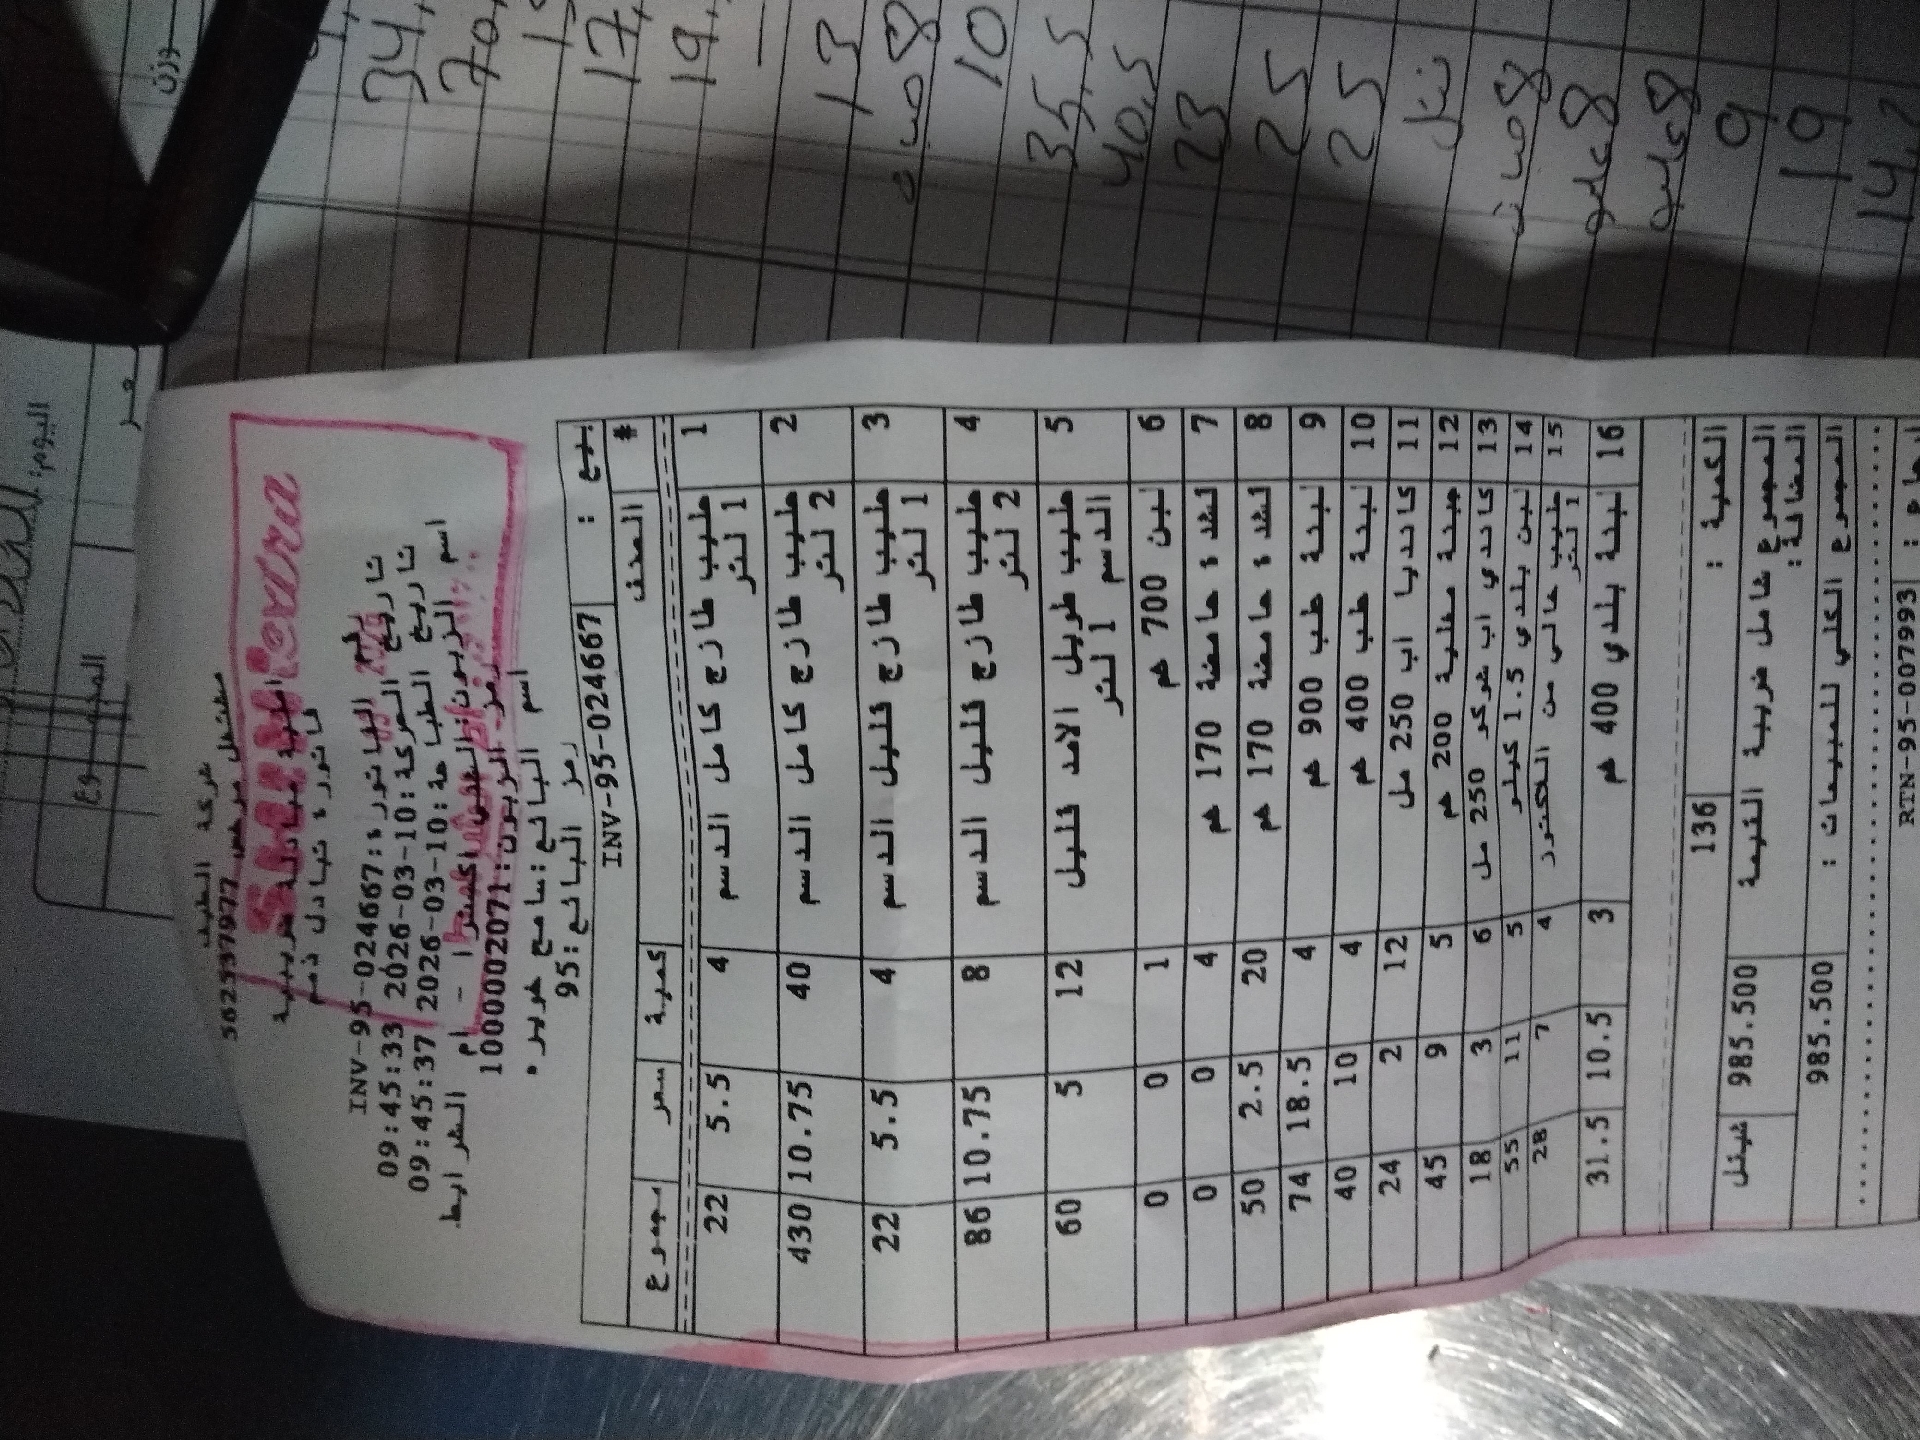 شركة الطيف
مشتغل مرخص 562537977
فاتورة تبادل ذمم
رقم الفاتورة: INV-95-024667
تاريخ الحركة: 2026-03-10 09:45:33
تاريخ الطباعة: 2026-03-10 09:45:37
اسم الزبون: - ام الشرايط
رمز الزبون: 1000002071
اسم البائع: سامح
رمز البائع: 95
بيع : INV-95-024667
# الصنف كمية سعر مجموع
1 حليب طازج كامل الدسم 1 لتر 4 5.5 22
2 حليب طازج كامل الدسم 2 لتر 40 10.75 430
3 حليب طازج قليل الدسم 1 لتر 4 5.5 22
4 حليب طازج قليل الدسم 2 لتر 8 10.75 86
5 حليب طويل الامد قليل الدسم 1 لتر 12 5 60
6 لبن 700 غم 1 0 0
7 قشدة حامضة 170 غم 4 0 0
8 قشدة حامضة 170 غم 20 2.5 50
9 لبنة طب 900 غم 4 18.5 74
10 لبنة طب 400 غم 4 10 40
11 كانديا اب 250 مل 12 2 24
12 جبنة مغلية 200 غم 5 9 45
13 كاندي اب شوكو 250 مل 6 3 18
14 لبن بلدي 1.5 كيلو 5 11 55
15 حليب خالي من اللكتوز 1 لتر 4 7 28
16 لبنة بلدي 400 غم 3 10.5 31.5
الكمية : 136
المجموع شامل ضريبة القيمة المضافة: 985.500 شيقل
المجموع الكلي للمبيعات : 985.500
ارجاع : RTN-95-007993
34,
17,
19,
13
10
35,5
40,5
23
25
25
9
19
14,2
اليوم:
المجموع
وزن